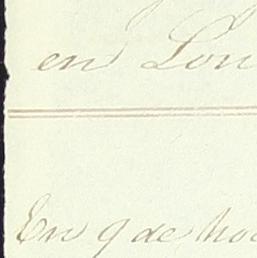 en Lon
En 9 de No